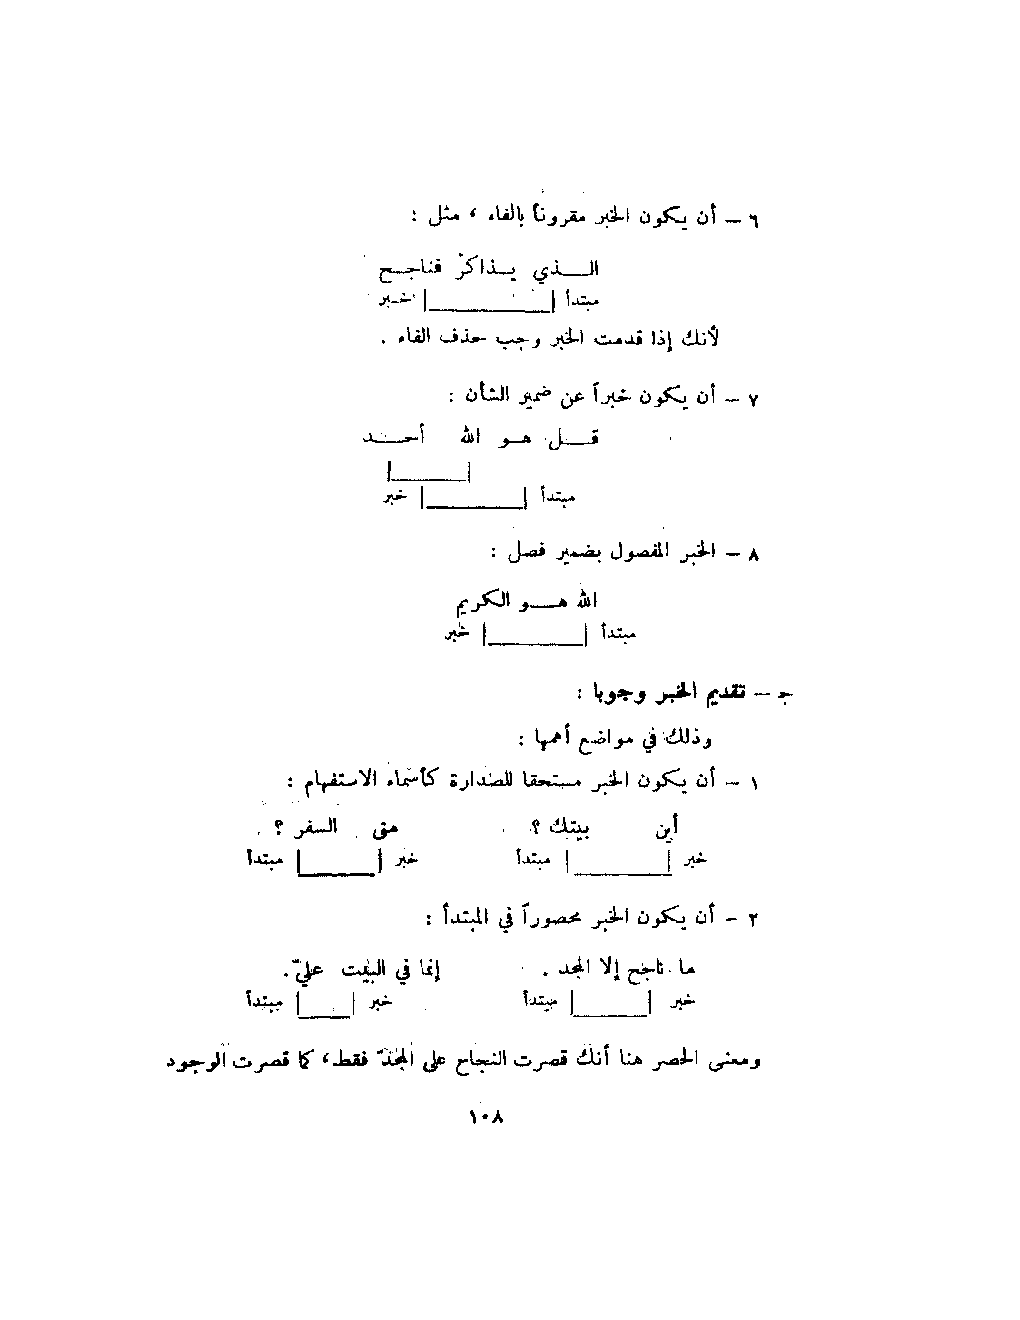 ٦ – أن يكون الخبر مقروناً بالفاء ، مثل :
الــذي يــذاكرْ فناجــح
مبتدأ خبر
لأنك إذا قدمت الخبر وجب حذف الفاء .
٧ – أن يكون خبراً عن ضمير الشأن :
قــل هــو الله أحــد
مبتدأ خبر
٨ – الخبر المفصول بضمير فصل :
الله هــو الكريم
مبتدأ خبر
جـ – تقديم الخبر وجوبا :
وذلك في مواضع أهمها :
١ – أن يكون الخبر مستحقا للصدارة كأسماء الاستفهام :
أين بيتك ؟ متى السفر ؟
خبر مبتدأ خبر مبتدأ
٢ – أن يكون الخبر محصوراً في المبتدأ :
ما ناجح إلا المجد . إنما في البيت عليّ .
خبر مبتدأ خبر مبتدأ
ومعنى الحصر هنا أنك قصرت النجاح على المجدّ فقط ، كما قصرت الوجود
١٠٨